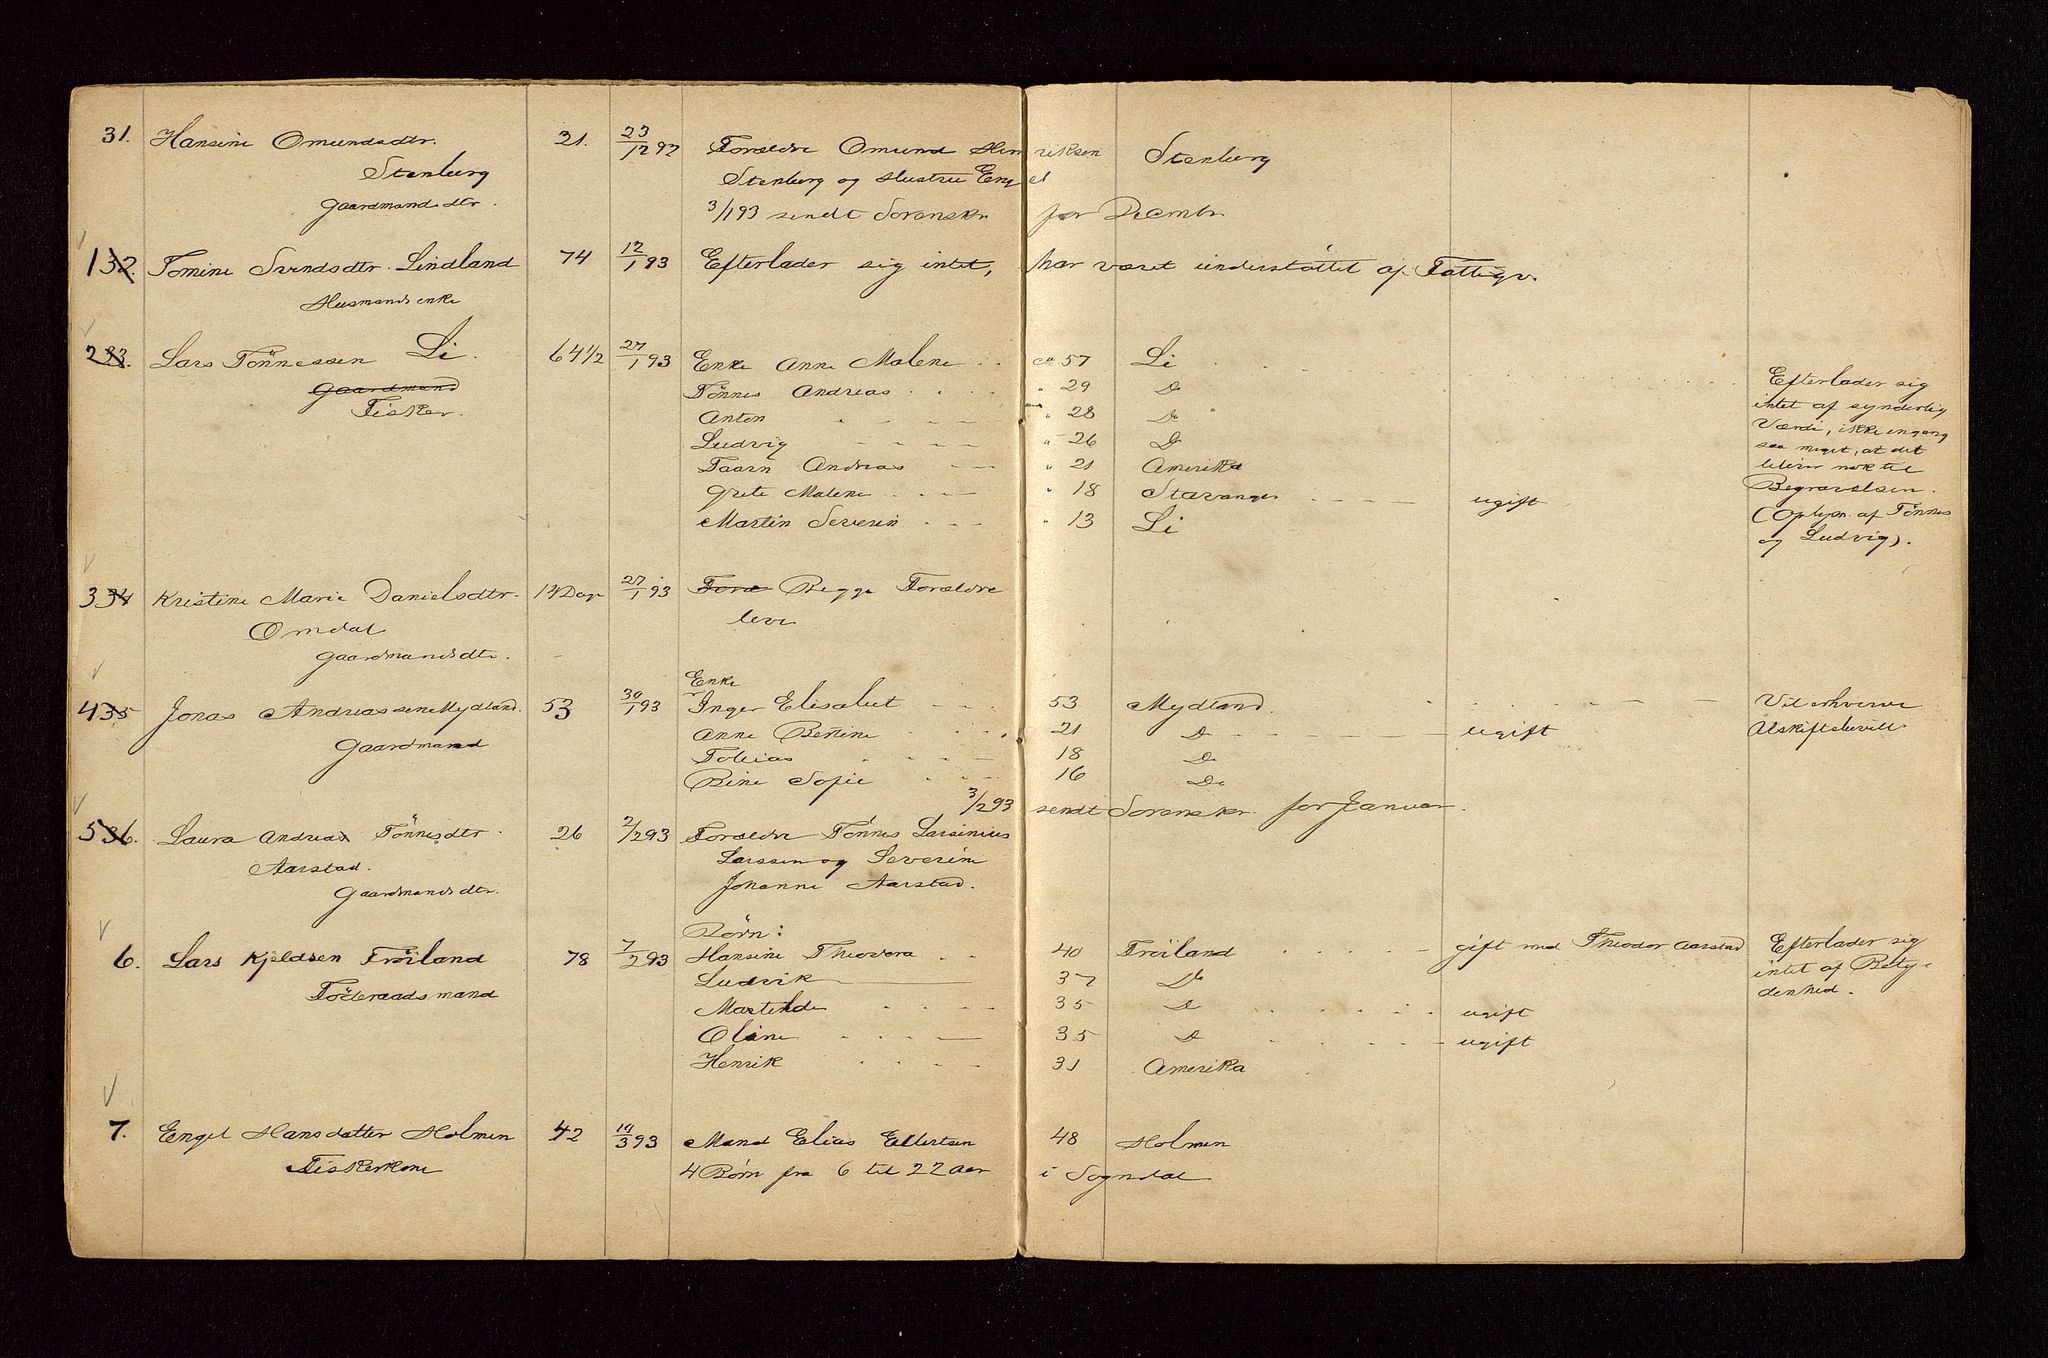 31. Hansine Omundsdtr. 21. 23/12 92 Forældre Omund Henriksen Stenberg
Stenberg Stenberg og Hustru Engel
Gaardmandsdtr. 3/1 93 sendt Sorenskr for Decmbr.
1 32. Tomine Svendsdtr. Lindland 74 12/1 93 Efterlader sig intet, har været understøttet af Fattigv.
Husmandsenke
2 33. Lars Tönnessen Li. 64 1/2 27/1 93 Enke Anne Malene ca 57 Li
Gaardmand Tönnes Andreas " 29 Do Efterlader sig
Fisker. Anton " 28 Do intet af synderlig
Ludvig " 26 Do Værdi, ikke engang
Taarn Andreas " 21 Amerika saa meget, at det
Grete Malene " 18 Stavanger ugift bliver nok til
Martin Severin " 13 Li Begravelsen.
(Oplysn. af Tönnes
og Ludvig).
3 34 Kristine Marie Danielsdtr. 14 Dage 27/1 93 Foræ Begge Forældre
Omdal leve
Gaardmandsdtr.
Enke
4 35 Jonas Andreassen Mydland. 53 30/1 93 Inger Elisabet 53 Mydland Vil erhverve
Gaardmand Anne Bertine 21 Do ugift Uskiftebevill.
Tobias 18 Do
Bine Sofie 16 Do
3/2 93 sendt Sorenskr. for Januar.
5 36. Laura Andrea Tönnesdtr. 26 2/2 93 Forældre Tönnes Larsinius
Aarstad. Larssen og Severine
Gaardmandsdtr. Johanne Aarstad.
Børn:
6. Lars Kjeldsen Fröiland 78 7/2 93 Hansine Theodora 40 Fröiland gift med Theodor Aarstad Efterlader sig
Föderaadsmand Ludvik 37 Do intet af Bety-
Martilde 35 Do ugift denhed.
Oline 35 Do ugift
Henrik 31 Amerika
7. Engel Hansdatter Holmen 42 10/3 93 Mand Elias Ellertsen 48 Holmen
Fiskerkone 4 Børn fra 6 til 22 Aar i Sogndal